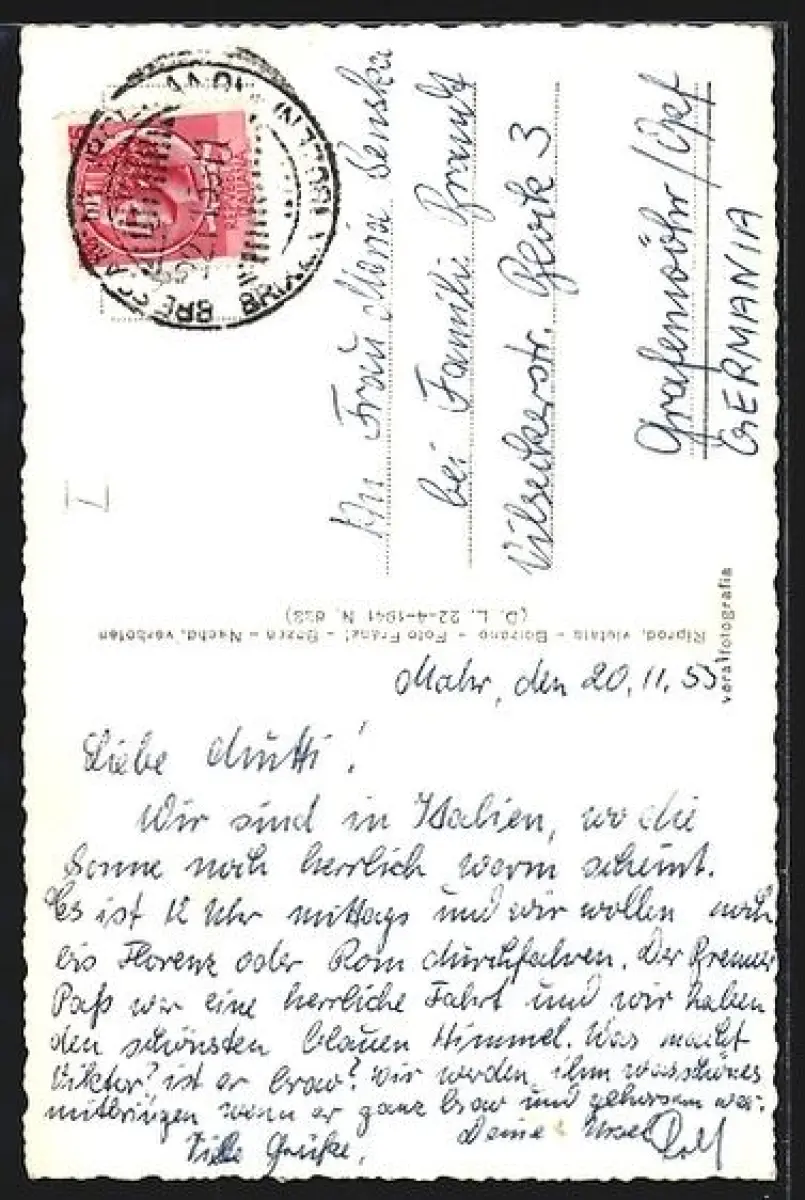 BRESSANONE
REPUBBLICA
ITALIANA
I
An Frau Maria
bei Familie Brandt
Vilseckerstr. Block 3
Grafenwöhr/Opf
GERMANIA
Riprod. vietata - Bolzano - Foto Fränzl - Bozen - Nachd. verboten
(D. L. 22-4-1941 N. 633)
vera fotografia
Mahr, den 20.11.55
Liebe Mutti!
Wir sind in Italien, wo die
Sonne noch herrlich warm scheint.
Es ist 12 Uhr mittags und wir wollen noch
bis Florenz oder Rom durchfahren. Der Brenner
Paß war eine herrliche Fahrt und wir haben
den schönsten blauen Himmel. Was macht
Viktor? ist er brav? Wir werden ihm was schönes
mitbringen wenn er ganz brav und gehorsam war.
Viele Grüße, Deine Ursel Rolf